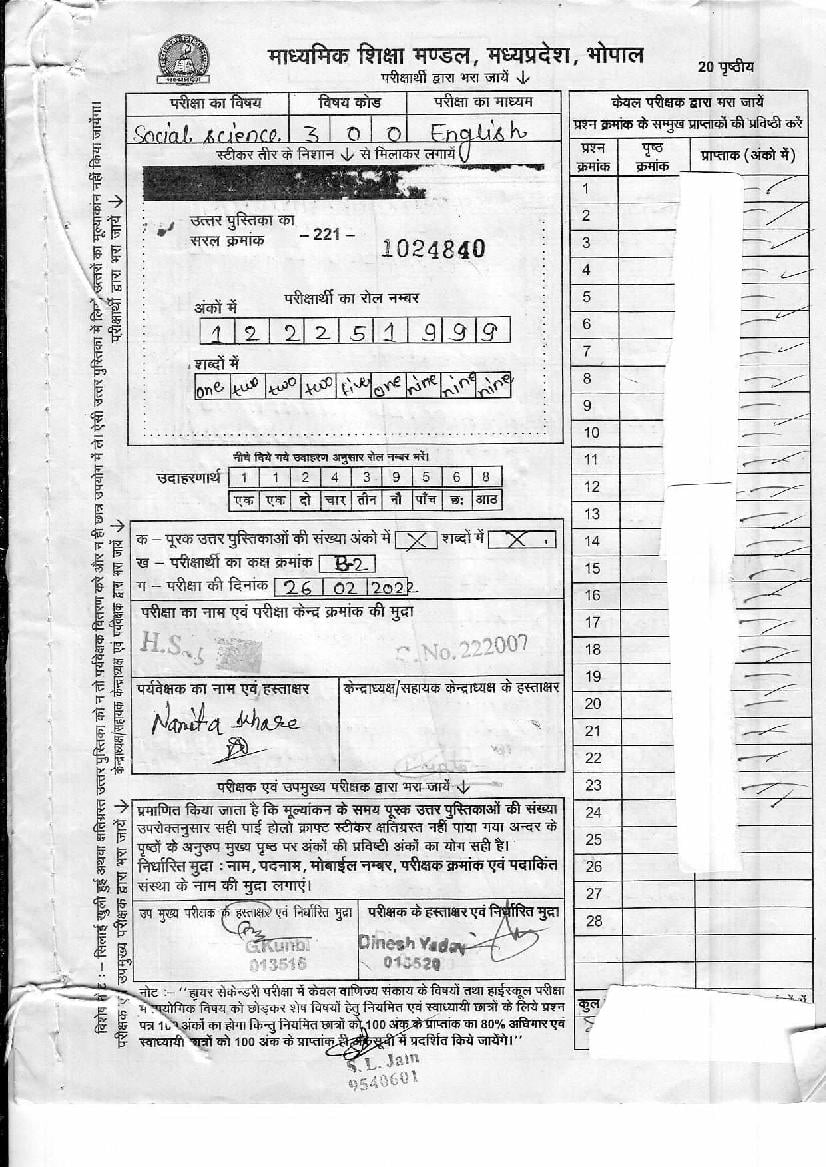 माध्यमिक शिक्षा मण्डल, मध्यप्रदेश, भोपाल
20 पृष्ठीय
परीक्षार्थी द्वारा भरा जायें ↓
परीक्षा का विषय विषय कोड परीक्षा का माध्यम
Social science. 3 0 0 English
स्टीकर तीर के निशान ↓ से मिलाकर लगायें
उत्तर पुस्तिका का
सरल क्रमांक – 221 – 1024840
परीक्षार्थी का रोल नम्बर
अंकों में
1 2 2 2 5 1 9 9 9
शब्दों में
one two two two five one nine nine nine
नीचे दिये गये उदाहरण अनुसार रोल नम्बर भरें।
उदाहरणार्थ 1 1 2 4 3 9 5 6 8
एक एक दो चार तीन नौ पाँच छः आठ
क – पूरक उत्तर पुस्तिकाओं की संख्या अंकों में X शब्दों में X .
ख – परीक्षार्थी का कक्ष क्रमांक B-2
ग – परीक्षा की दिनांक 26 02 2022
परीक्षा का नाम एवं परीक्षा केन्द्र क्रमांक की मुद्रा
C.No.222007
पर्यवेक्षक का नाम एवं हस्ताक्षर केन्द्राध्यक्ष/सहायक केन्द्राध्यक्ष के हस्ताक्षर
Namita khare
परीक्षक एवं उपमुख्य परीक्षक द्वारा भरा जायें ↓
प्रमाणित किया जाता है कि मूल्यांकन के समय पूरक उत्तर पुस्तिकाओं की संख्या
उपरोक्तनुसार सही पाई होलो क्राफ्ट स्टीकर क्षतिग्रस्त नहीं पाया गया अन्दर के
पृष्ठों के अनुरुप मुख्य पृष्ठ पर अंकों की प्रविष्टी अंकों का योग सही है।
निर्धारित मुद्रा : नाम, पदनाम, मोबाईल नम्बर, परीक्षक क्रमांक एवं पदांकित
संस्था के नाम की मुद्रा लगाएं।
उप मुख्य परीक्षक के हस्ताक्षर एवं निर्धारित मुद्रा परीक्षक के हस्ताक्षर एवं निर्धारित मुद्रा
G.Kunbi Dinesh Yadav
013516 013520
नोट :– "हायर सेकेन्डरी परीक्षा में केवल वाणिज्य संकाय के विषयों तथा हाईस्कूल परीक्षा
विषय को छोड़कर शेष विषयों हेतु नियमित एवं स्वाध्यायी छात्रों के लिये प्रश्न
पत्र 100 अंकों का होगा किन्तु नियमित छात्रों को 100 अंक के प्राप्तांक का 80% अधिभार एवं
स्वाध्यायी छात्रों को 100 अंक के प्राप्तांक ही अंकसूची में प्रदर्शित किये जायेंगे।"
S. L. Jain
9540601
केवल परीक्षक द्वारा भरा जायें
प्रश्न क्रमांक के सम्मुख प्राप्तांकों की प्रविष्टी करें
प्रश्न क्रमांक पृष्ठ क्रमांक प्राप्तांक (अंकों में)
1
2
3
4
5
6
7
8
9
10
11
12
13
14
15
16
17
18
19
20
21
22
23
24
25
26
27
28
कुल
परीक्षार्थी द्वारा भरा जायें